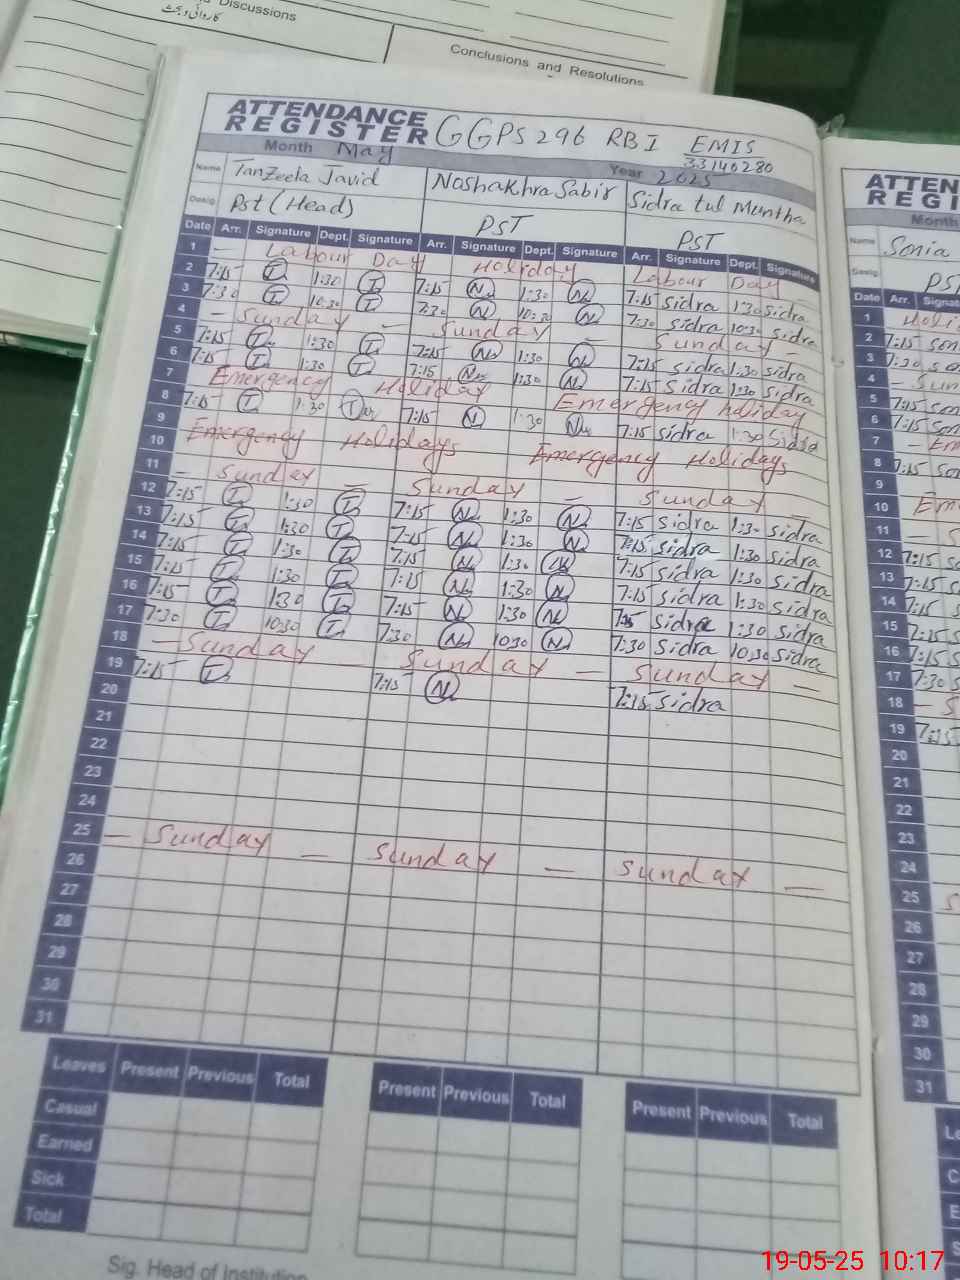 Discussions
کاروائی و بحث
Conclusions and Resolutions
ATTENDANCE
REGISTER GGPS 296 RBI EMIS
33140280
Month May Year 2025
Name Tanzeela Javid Noshakhra Sabir Sidra tul Muntha
Desig Pst (Head) PST PST
Date Arr. Signature Dept. Signature Arr. Signature Dept. Signature Arr. Signature Dept. Signature
1 — Labour Day Holiday Labour Day —
2 7:15 1:30 7:15 1:30 7:15 sidra 1:30 sidra
3 7:30 10:30 7:30 10:30 7:30 sidra 10:30 sidra
4 — Sunday — Sunday — Sunday —
5 7:15 1:30 7:15 1:30 7:15 sidra 1:30 sidra
6 7:15 1:30 7:15 1:30 7:15 sidra 1:30 sidra
7 Emergency Holiday Emergency holiday
8 7:15 1:30 7:15 1:30 7:15 sidra 1:30 sidra
9
10 Emergency Holidays Emergency Holidays
11 — Sunday — Sunday — Sunday —
12 7:15 1:30 7:15 1:30 7:15 sidra 1:30 sidra
13 7:15 1:30 7:15 1:30 7:15 sidra 1:30 sidra
14 7:15 1:30 7:15 1:30 7:15 sidra 1:30 sidra
15 7:15 1:30 7:15 1:30 7:15 sidra 1:30 sidra
16 7:15 1:30 7:15 1:30 7:15 sidra 1:30 sidra
17 7:30 10:30 7:30 10:30 7:30 sidra 10:30 sidra
18 — Sunday — Sunday — Sunday —
19 7:15 7:15 7:15 sidra
20
21
22
23
24
25 — Sunday — Sunday — Sunday —
26
27
28
29
30
31
Leaves Present Previous Total Present Previous Total Present Previous Total
Casual
Earned
Sick
Total
Sig. Head of Institution
ATTEN
REGI
Month
Name Sonia
Desig PST
Date Arr. Signat
1 Holi
2 7:15 son
3 7:30 so
4 — Sun
5 7:15 son
6 7:15 son
7 — Em
8 7:15 son
9
10 Em
11 — S
12 7:15 so
13 7:15 s
14 7:15 s
15 7:15 s
16 7:15 s
17 7:30 s
18 — S
19 7:15
20
21
22
23
24
25 S
26
27
28
29
30
31
Le
C
E
S
19-05-25 10:17